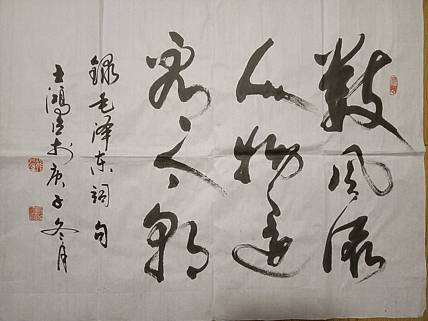 数风流
人物还
看今朝
录毛泽东词句
士鸿 书于庚子冬月